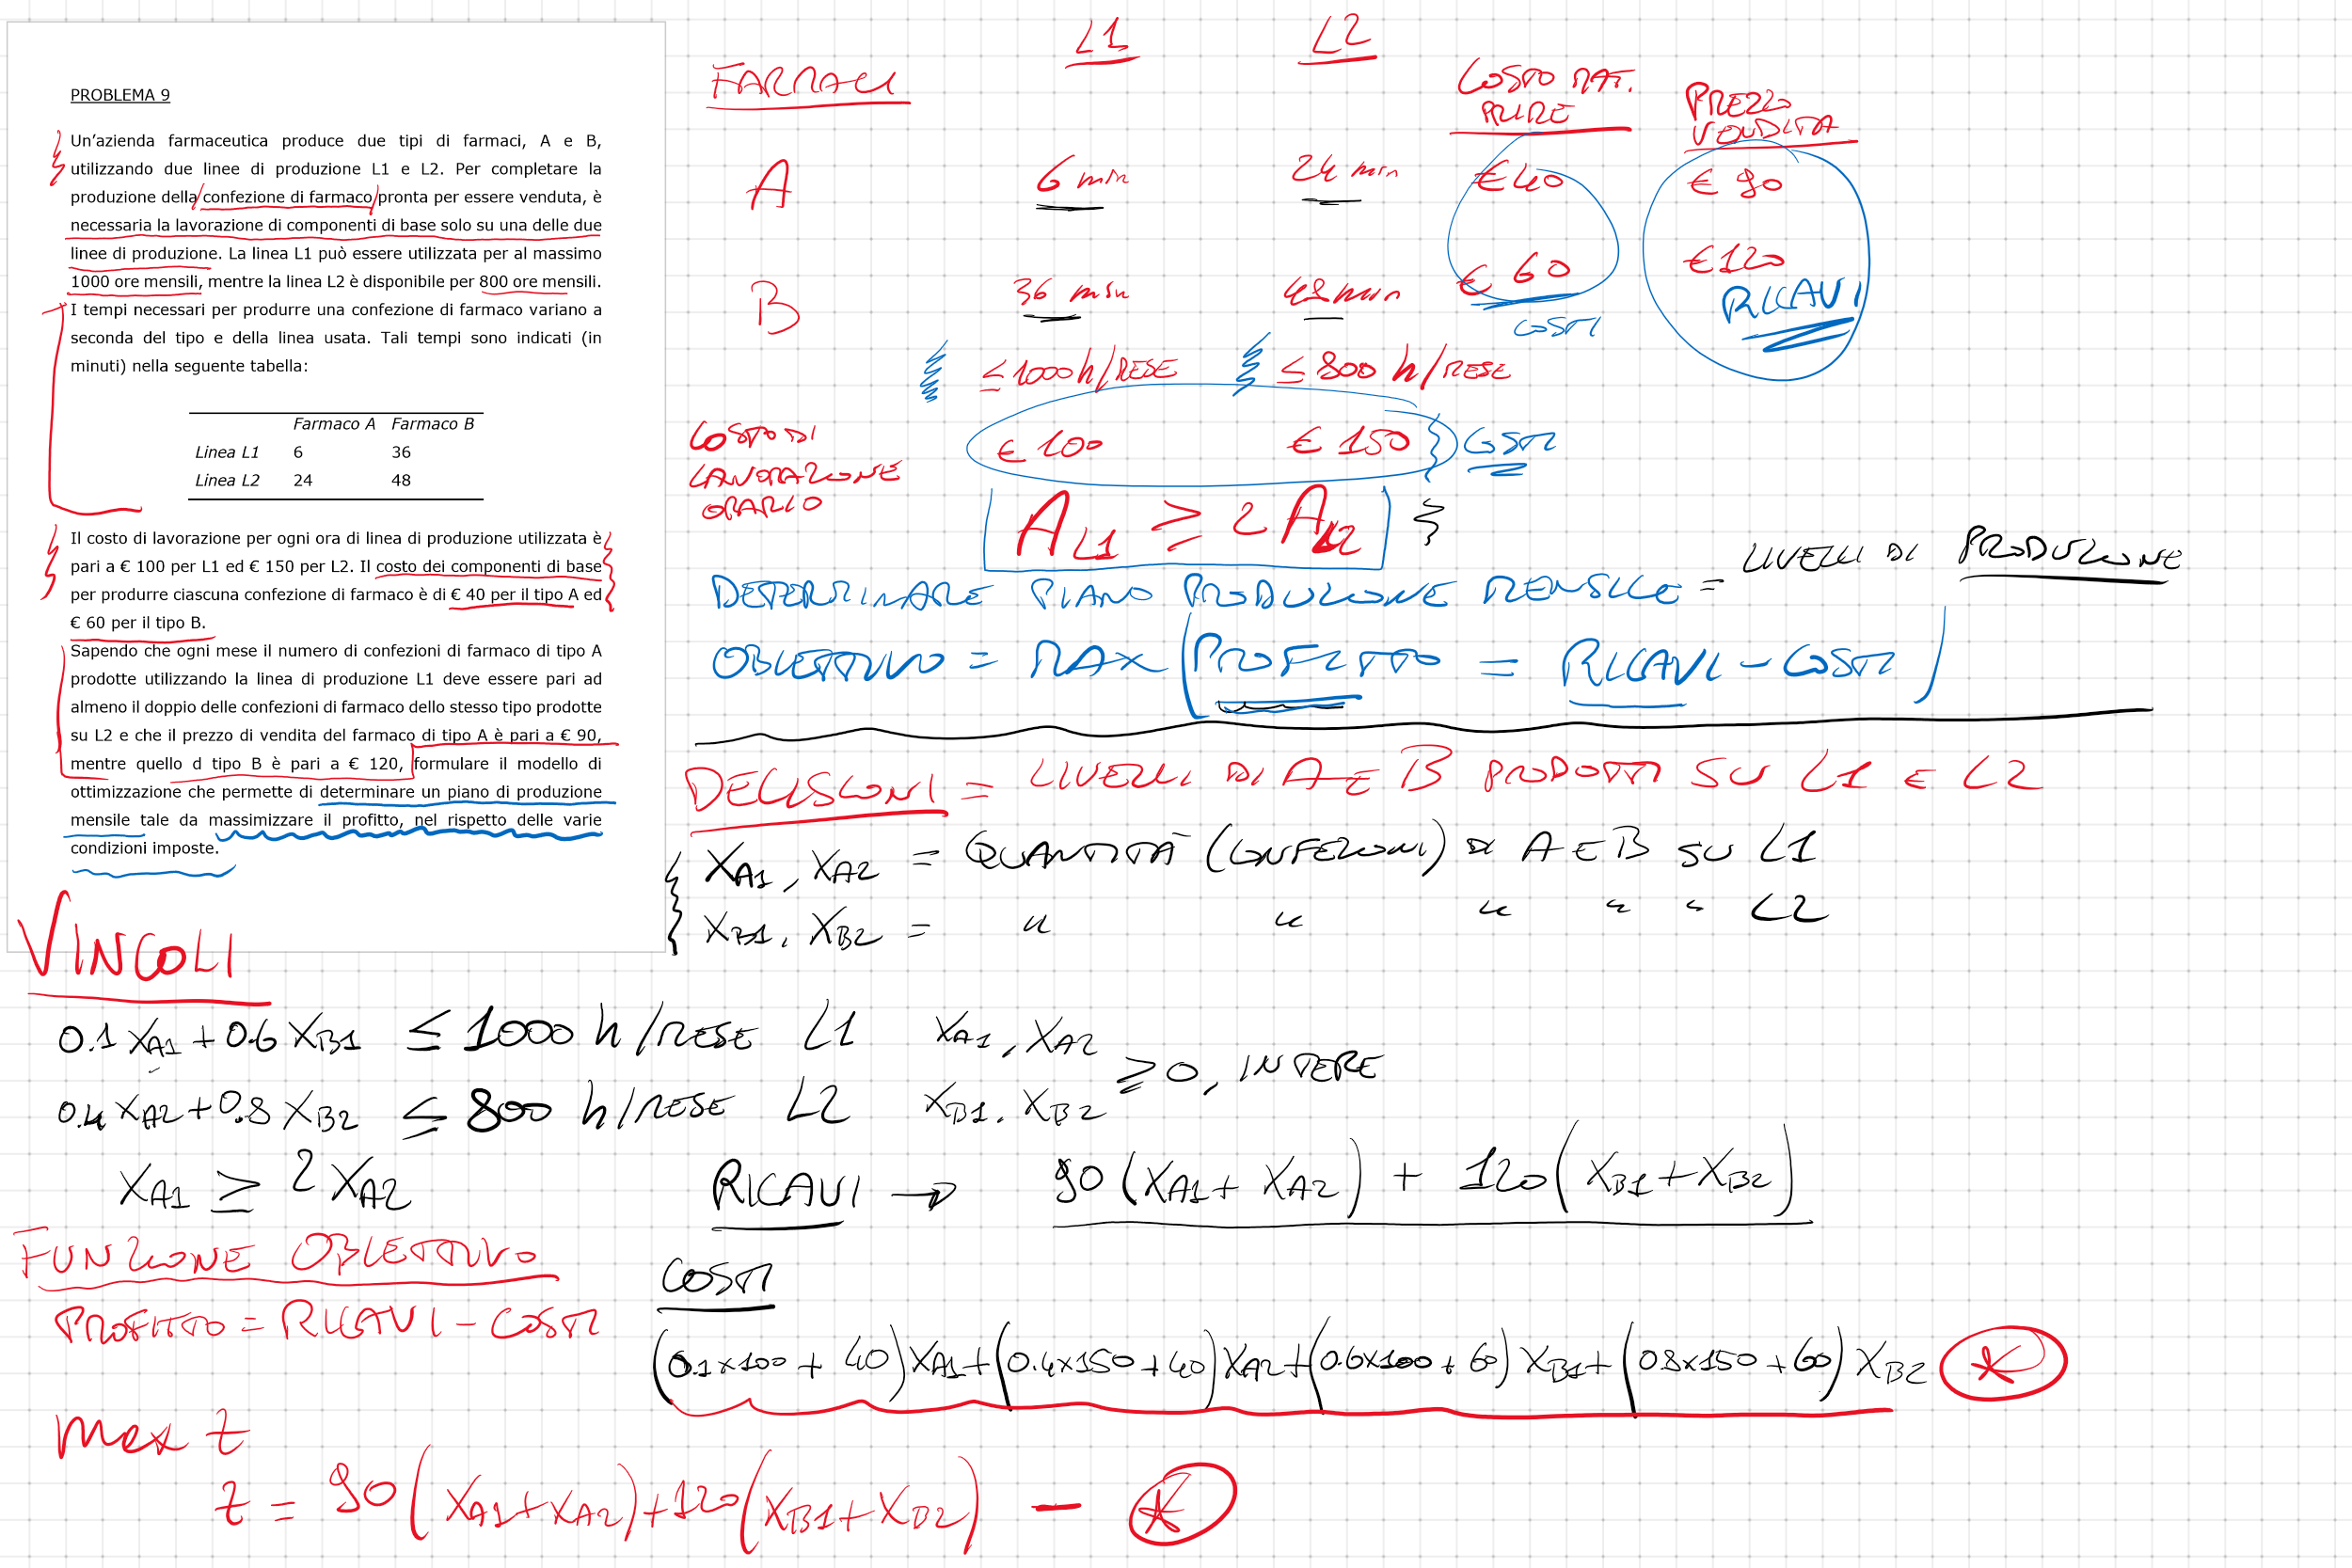 PROBLEMA 9
Un'azienda farmaceutica produce due tipi di farmaci, A e B,
utilizzando due linee di produzione L1 e L2. Per completare la
produzione della confezione di farmaco pronta per essere venduta, è
necessaria la lavorazione di componenti di base solo su una delle due
linee di produzione. La linea L1 può essere utilizzata per al massimo
1000 ore mensili, mentre la linea L2 è disponibile per 800 ore mensili.
I tempi necessari per produrre una confezione di farmaco variano a
seconda del tipo e della linea usata. Tali tempi sono indicati (in
minuti) nella seguente tabella:
Farmaco A Farmaco B
Linea L1 6 36
Linea L2 24 48
Il costo di lavorazione per ogni ora di linea di produzione utilizzata è
pari a € 100 per L1 ed € 150 per L2. Il costo dei componenti di base
per produrre ciascuna confezione di farmaco è di € 40 per il tipo A ed
€ 60 per il tipo B.
Sapendo che ogni mese il numero di confezioni di farmaco di tipo A
prodotte utilizzando la linea di produzione L1 deve essere pari ad
almeno il doppio delle confezioni di farmaco dello stesso tipo prodotte
su L2 e che il prezzo di vendita del farmaco di tipo A è pari a € 90,
mentre quello d tipo B è pari a € 120, formulare il modello di
ottimizzazione che permette di determinare un piano di produzione
mensile tale da massimizzare il profitto, nel rispetto delle varie
condizioni imposte.
FARMACI L1 L2 COSTO MAT. PRIME PREZZO VENDITA
A 6 min 24 min € 40 € 90
B 36 min 48 min € 60 € 120
COSTI RICAVI
≤ 1000 h/MESE ≤ 800 h/MESE
COSTO DI LAVORAZIONE ORARIO € 100 € 150 } COSTI
A L1 ≥ 2 A L2
DETERMINARE PIANO PRODUZIONE MENSILE = LIVELLI DI PRODUZIONE
OBIETTIVO = MAX (PROFITTO = RICAVI - COSTI)
DECISIONI = LIVELLI DI A E B PRODOTTI SU L1 E L2
XA1, XA2 = QUANTITÀ (CONFEZIONI) DI A E B SU L1
XB1, XB2 = " " " " " L2
VINCOLI
0.1 XA1 + 0.6 XB1 ≤ 1000 h/MESE L1
0.4 XA2 + 0.8 XB2 ≤ 800 h/MESE L2
XA1, XA2
XB1, XB2 ≥ 0, INTERE
XA1 ≥ 2 XA2
RICAVI → 90 (XA1 + XA2) + 120 (XB1 + XB2)
FUNZIONE OBIETTIVO
PROFITTO = RICAVI - COSTI
COSTI
(0.1x100 + 40) XA1 + (0.4x150 + 40) XA2 + (0.6x100 + 60) XB1 + (0.8x150 + 60) XB2 *
max z
z = 90 (XA1 + XA2) + 120 (XB1 + XB2) - *